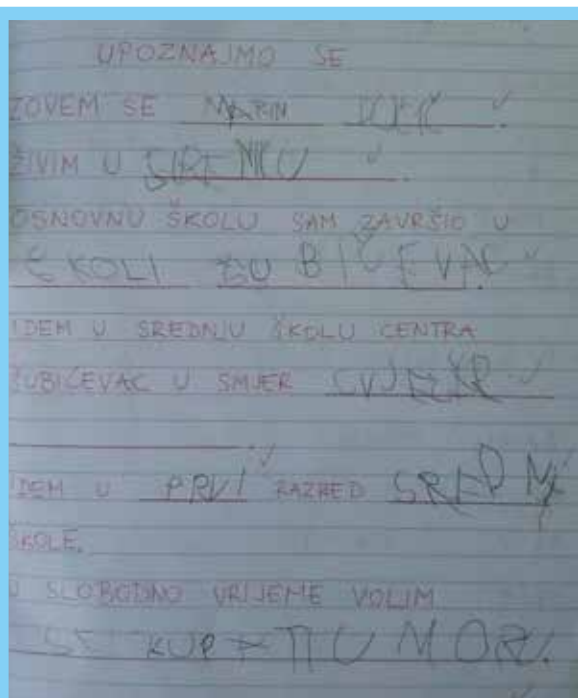 UPOZNAJMO SE
ZOVEM SE MARIN
ŽIVIM U
OSNOVNU ŠKOLU SAM ZAVRŠIO U
ŠKOLI ŠUBIČEVAC.
IDEM U SREDNJU ŠKOLU CENTRA
ŠUBIĆEVAC U SMJER CVJEĆAR
.
IDEM U PRVI RAZRED
ŠKOLE.
U SLOBODNO VRIJEME VOLIM
SE KUPATI U MORU.